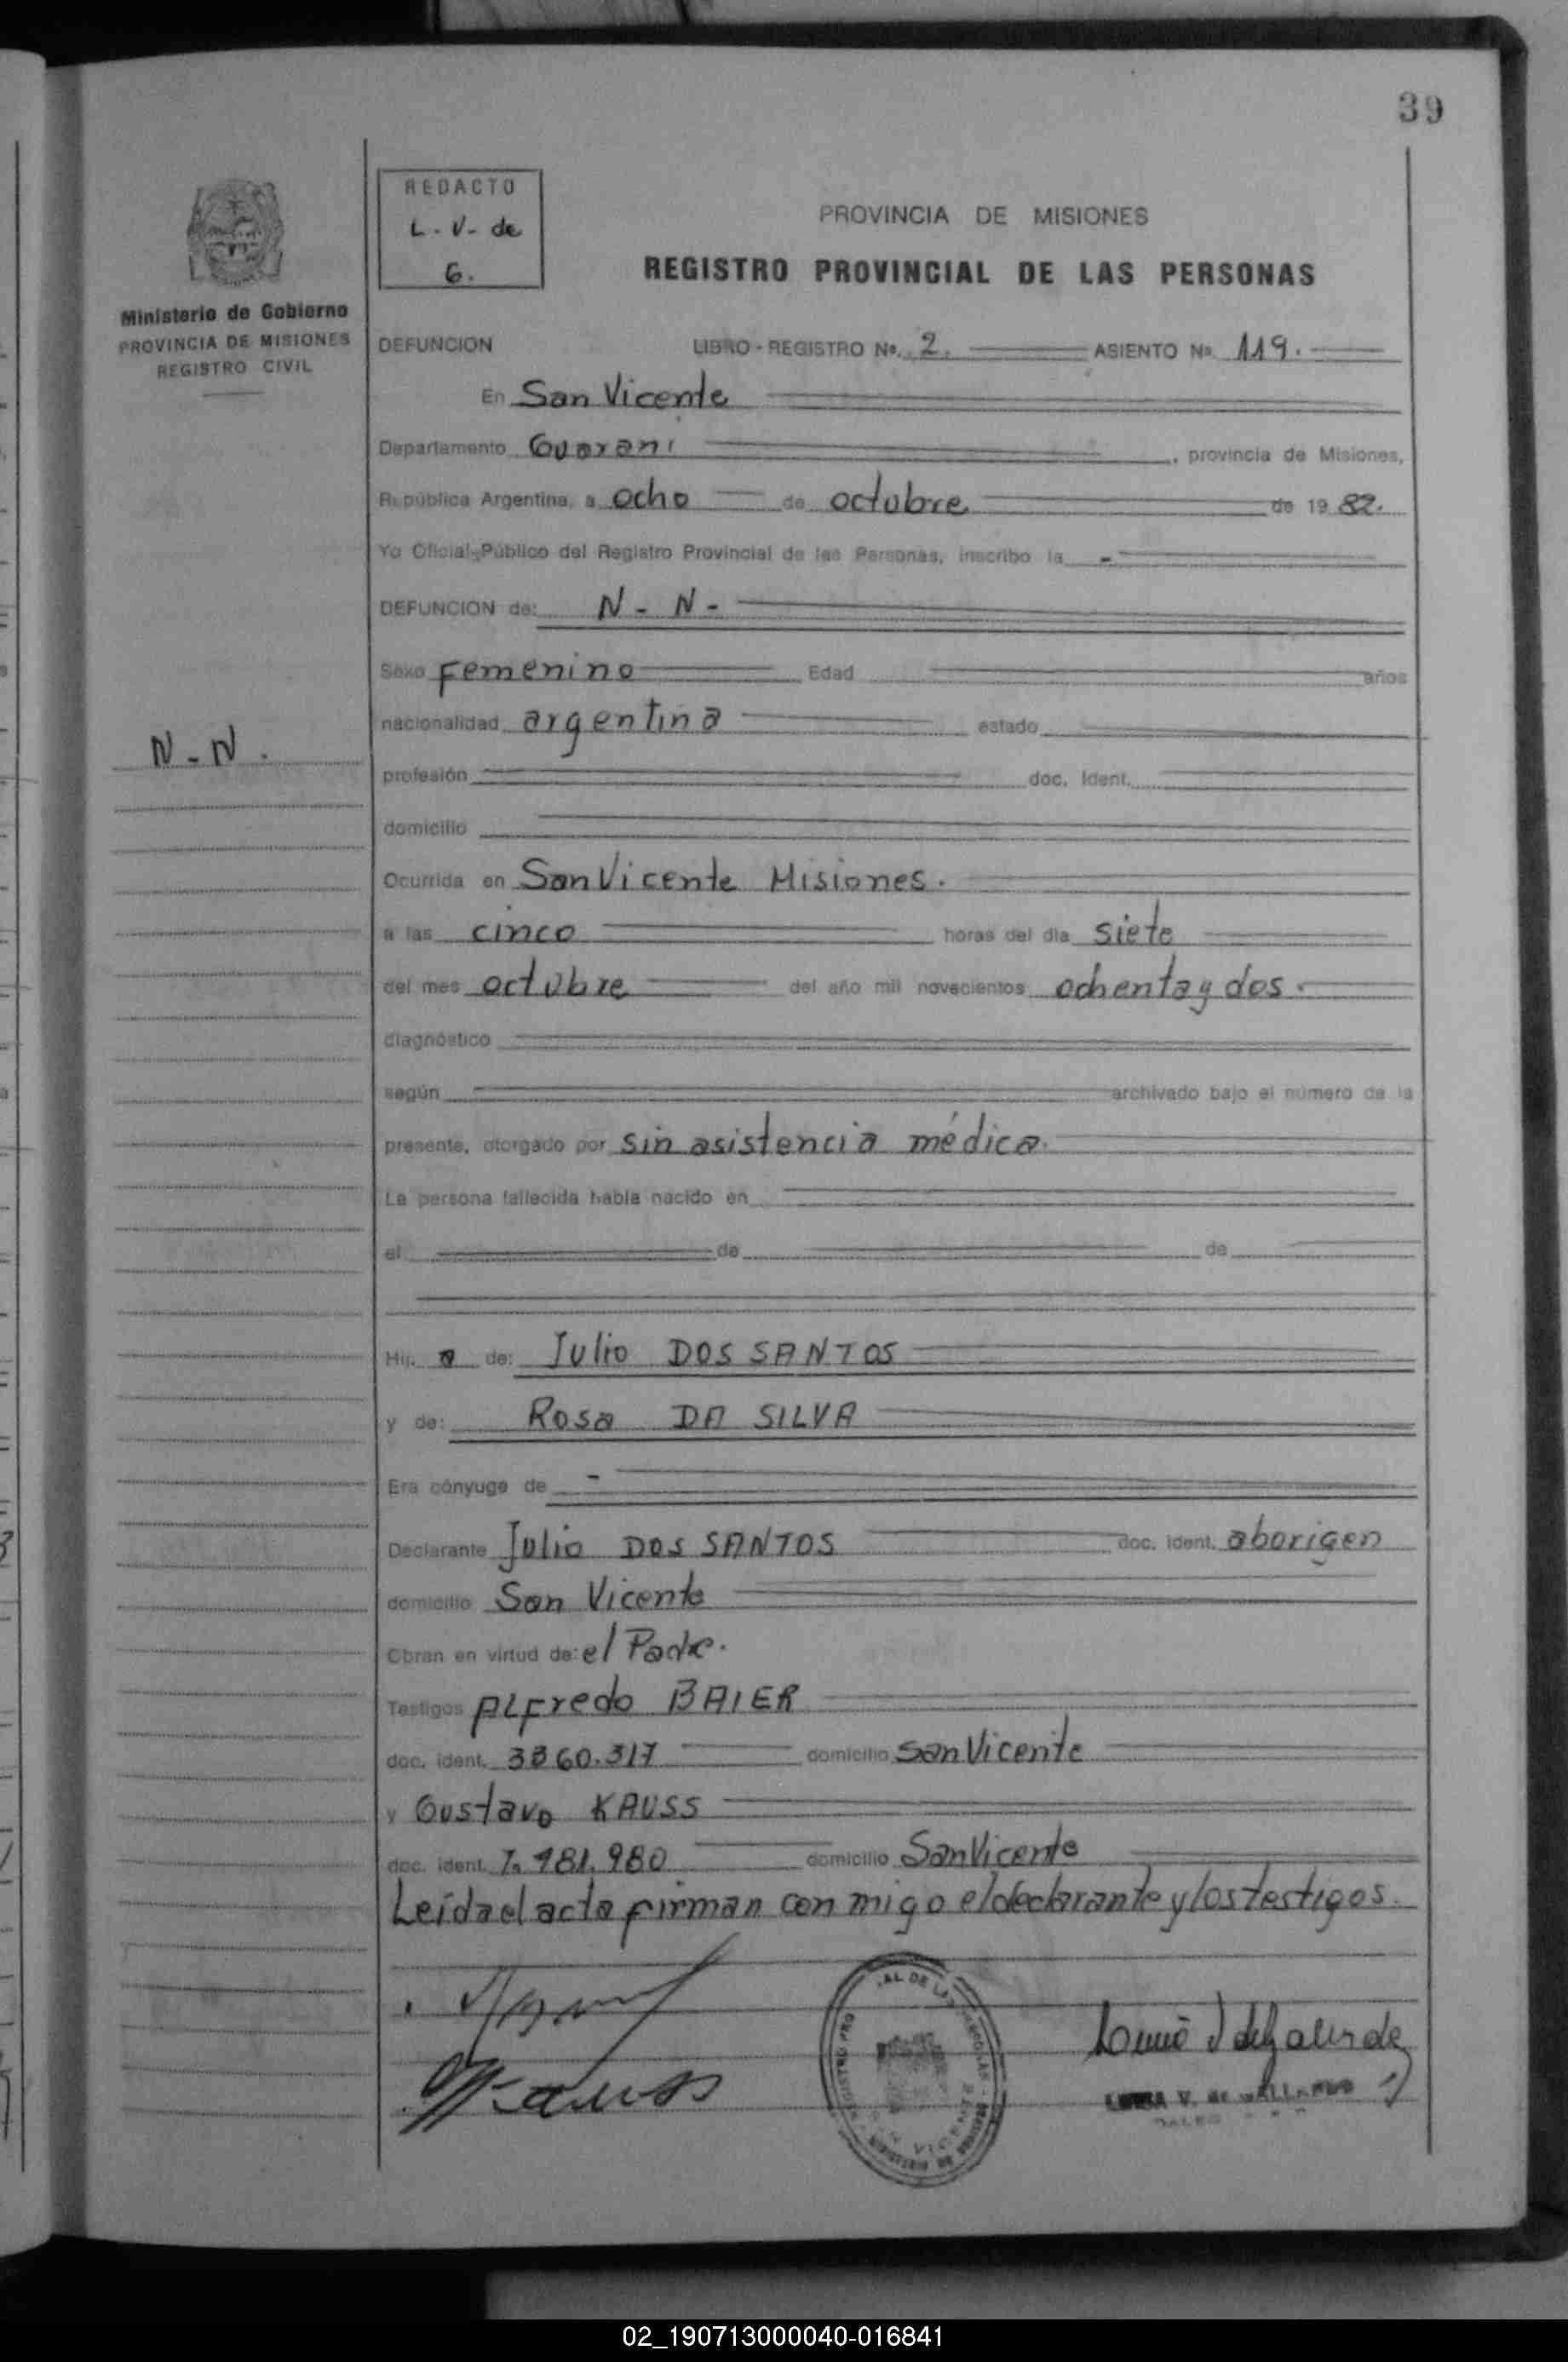 39
REDACTO
L. V. de
G.
PROVINCIA DE MISIONES
REGISTRO PROVINCIAL DE LAS PERSONAS
Ministerio de Gobierno
PROVINCIA DE MISIONES
REGISTRO CIVIL
DEFUNCION LIBRO - REGISTRO Nº. 2. ASIENTO Nº 119.
En San Vicente
Departamento Guarani , provincia de Misiones,
República Argentina, a ocho de octubre de 19 82.
Yo Oficial Público del Registro Provincial de las Personas, inscribo la -
DEFUNCION de: N - N -
Sexo Femenino Edad años
nacionalidad argentina estado
N - N .
profesión doc. Ident.
domicilio
Ocurrida en San Vicente Misiones.
a las cinco horas del día siete
del mes octubre del año mil novecientos ochenta y dos.
diagnóstico
según archivado bajo el número de la
presente, otorgado por sin asistencia médica.
La persona fallecida había nacido en
el de de
Hij a de: Julio DOS SANTOS
y de: Rosa DA SILVA
Era cónyuge de -
Declarante Julio DOS SANTOS doc. ident. aborigen
domicilio San Vicente
Obran en virtud de: el Padre.
Testigos ALFredo BAIER
doc. ident. 3360.317 domicilio San Vicente
y Gustavo KAUSS
doc. ident. 7.481.980 domicilio San Vicente
Leída el acta firman con migo el declarante y los testigos.
Kauss
VICENTE
02_190713000040-016841